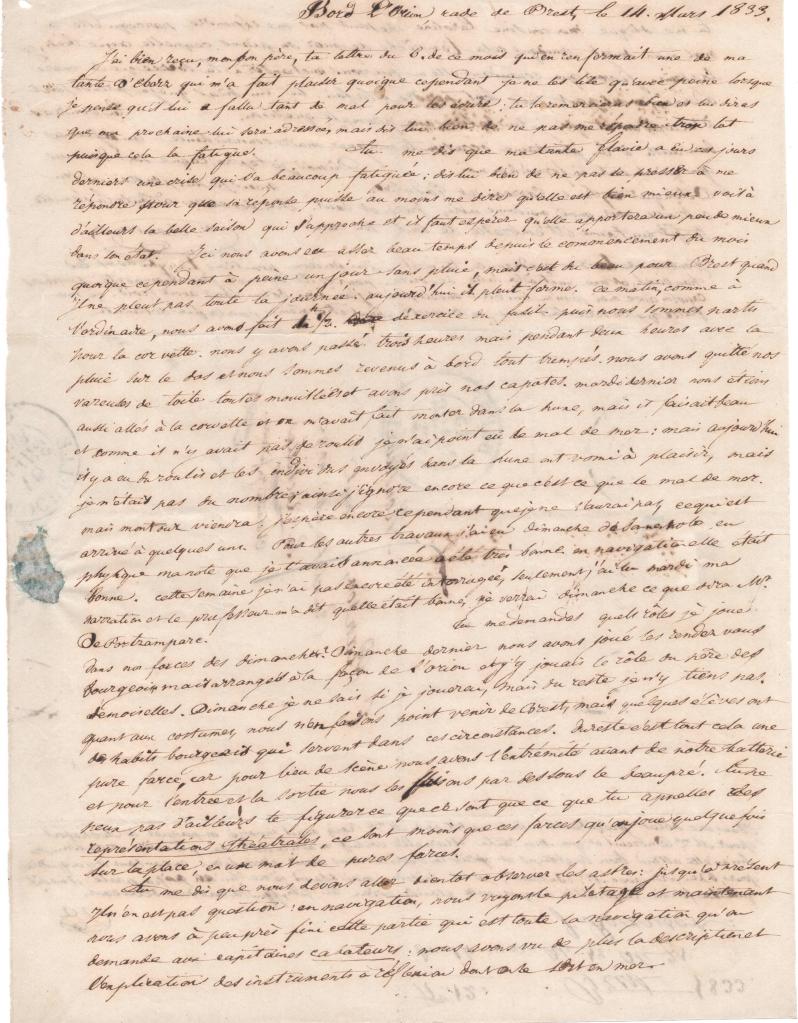 Bord L'Orion rade de Brest, le 14. Mars 1833.
J'ai bien reçu, mon bon père, ta lettre du 6. de ce mois qui en renfermait une de ma
tante d'Ebarz qui m'a fait plaisir quoique cependant je ne les lite qu'avec peine lorsque
je pense qu'il lui a fallu tant de mal pour les écrire: tu la remercieras bien et lui diras
que ma prochaine lui sera adressée, mais dis lui bien de ne pas me répondre trop tot
puisque cela la fatigue. Tu me dis que ma tante flavie a eu ces jours
derniers une crise qui l'a beaucoup fatiguée: dis lui bien de ne pas se presser à me
répondre pour que sa reponse puisse au moins me dire qu'elle est bien mieux. voilà
d'ailleurs la belle saison qui s'approche et il faut espérer qu'elle apportera un peu de mieux
dans son état. Ici nous avons eu assez beau temps depuis le commencement du mois
quoique cependant à peine un jour sans pluie, mais c'est du beau pour Brest quand
il ne pleut pas toute la journée. aujourd'hui il pleut ferme. ce matin, comme à
l'ordinaire, nous avons fait 1h 1/2 d'exercice du fusil puis nous sommes partis
pour la corvette. nous y avons passé trois heures mais pendant deux heures avec la
pluie sur le dos et nous sommes revenus à bord tout trempés. nous avons quitté nos
vareuses de toile toutes mouillées et avons pris nos capotes. mardi dernier nous étions
aussi allés à la corvette et on m'avait fait monter dans la hune, mais il faisait beau
et comme il n'y avait pas de roulis je n'ai point eu de mal de mer: mais aujourd'hui
il y a eu du roulis et les individus envoyés dans la hune ont vomi à plaisir, mais
je n'étais pas du nombre, aussi j'ignore encore ce que c'est ce que le mal de mer.
mais mon tour viendra. j'espère encore cependant que je ne l'aurai pas, ce qui est
arrivé à quelques uns. Pour les autres travaux j'ai eu dimanche ma note en
physique ma note que je t'avais annoncée a été très bonne, en navigation elle était
bonne. cette semaine je n'ai pas encore été interrogé, seulement j'ai lu mardi ma
narration et le professeur m'a dit qu'elle était bonne, je verrai dimanche ce que dira Mr.
De Portzamparc. Tu me demandes quels rôles je joue
dans nos farces des dimanches. Dimanche dernier nous avons joué les rendez vous
bourgeois, mais arrangés à la façon de L'orion et j'y jouais le rôle du père des
demoiselles. Dimanche je ne sais si je jouerai, mais du reste je n'y tiens pas.
quant aux costumes, nous n'en faisons point venir de Brest, mais quelques élèves ont
des habits bourgeois qui servent dans ces circonstances. Du reste c'est tout cela une
pure farce, car pour lieu de scène nous avons l'extrémité avant de notre batterie
et pour l'entrée et la sortie nous les faisons par dessous le beaupré. tu ne
peux pas d'ailleurs te figurer ce que ce sont que ce que tu appelles des
représentations théatrales, ce sont moins que ces farces qu'on joue quelque fois
sur la place, en un mot de pures farces.
Tu me dis que nous devons aller bientot observer les astres: jusqu'à présent
il n'en est pas question: en navigation, nous voyons le pilotage et maintenant
nous avons à peu près fini cette partie qui est toute la navigation qu'on
demande aux capitaines caboteurs: nous avons vu de plus la description et
l'explication des instruments à réflexion dont on se sert en mer.
1833